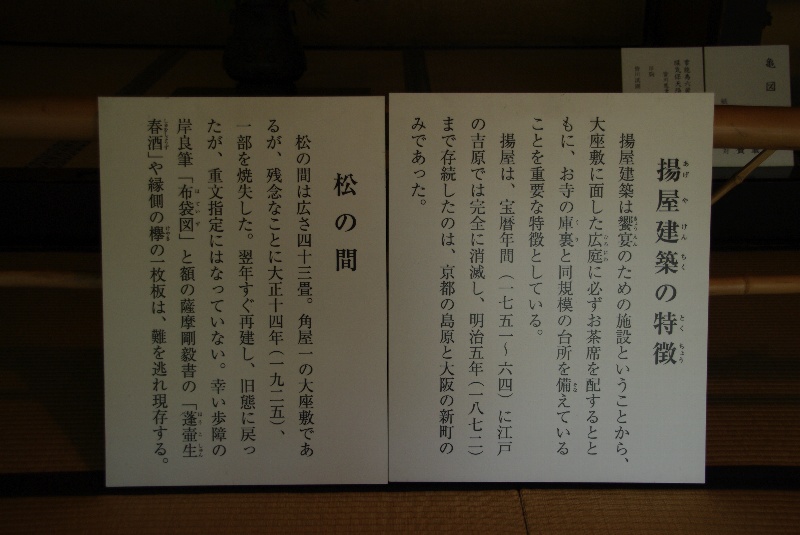 揚屋建築の特徴
揚屋建築は饗宴のための施設ということから、
大座敷に面した広庭に必ずお茶席を配するとと
もに、お寺の庫裏と同規模の台所を備えている
ことを重要な特徴としている。
揚屋は、宝暦年間（一七五一～六四）に江戸
の吉原では完全に消滅し、明治五年（一八七二）
まで存続したのは、京都の島原と大阪の新町の
みであった。
松の間
松の間は広さ四十三畳。角屋一の大座敷であ
るが、残念なことに大正十四年（一九二五）、
一部を焼失した。翌年すぐ再建し、旧態に戻っ
たが、重文指定にはなっていない。幸い歩障の
岸良筆「布袋図」と額の薩摩剛毅書の「蓬壺生
春酒」や縁側の欅の一枚板は、難を逃れ現存する。
亀図